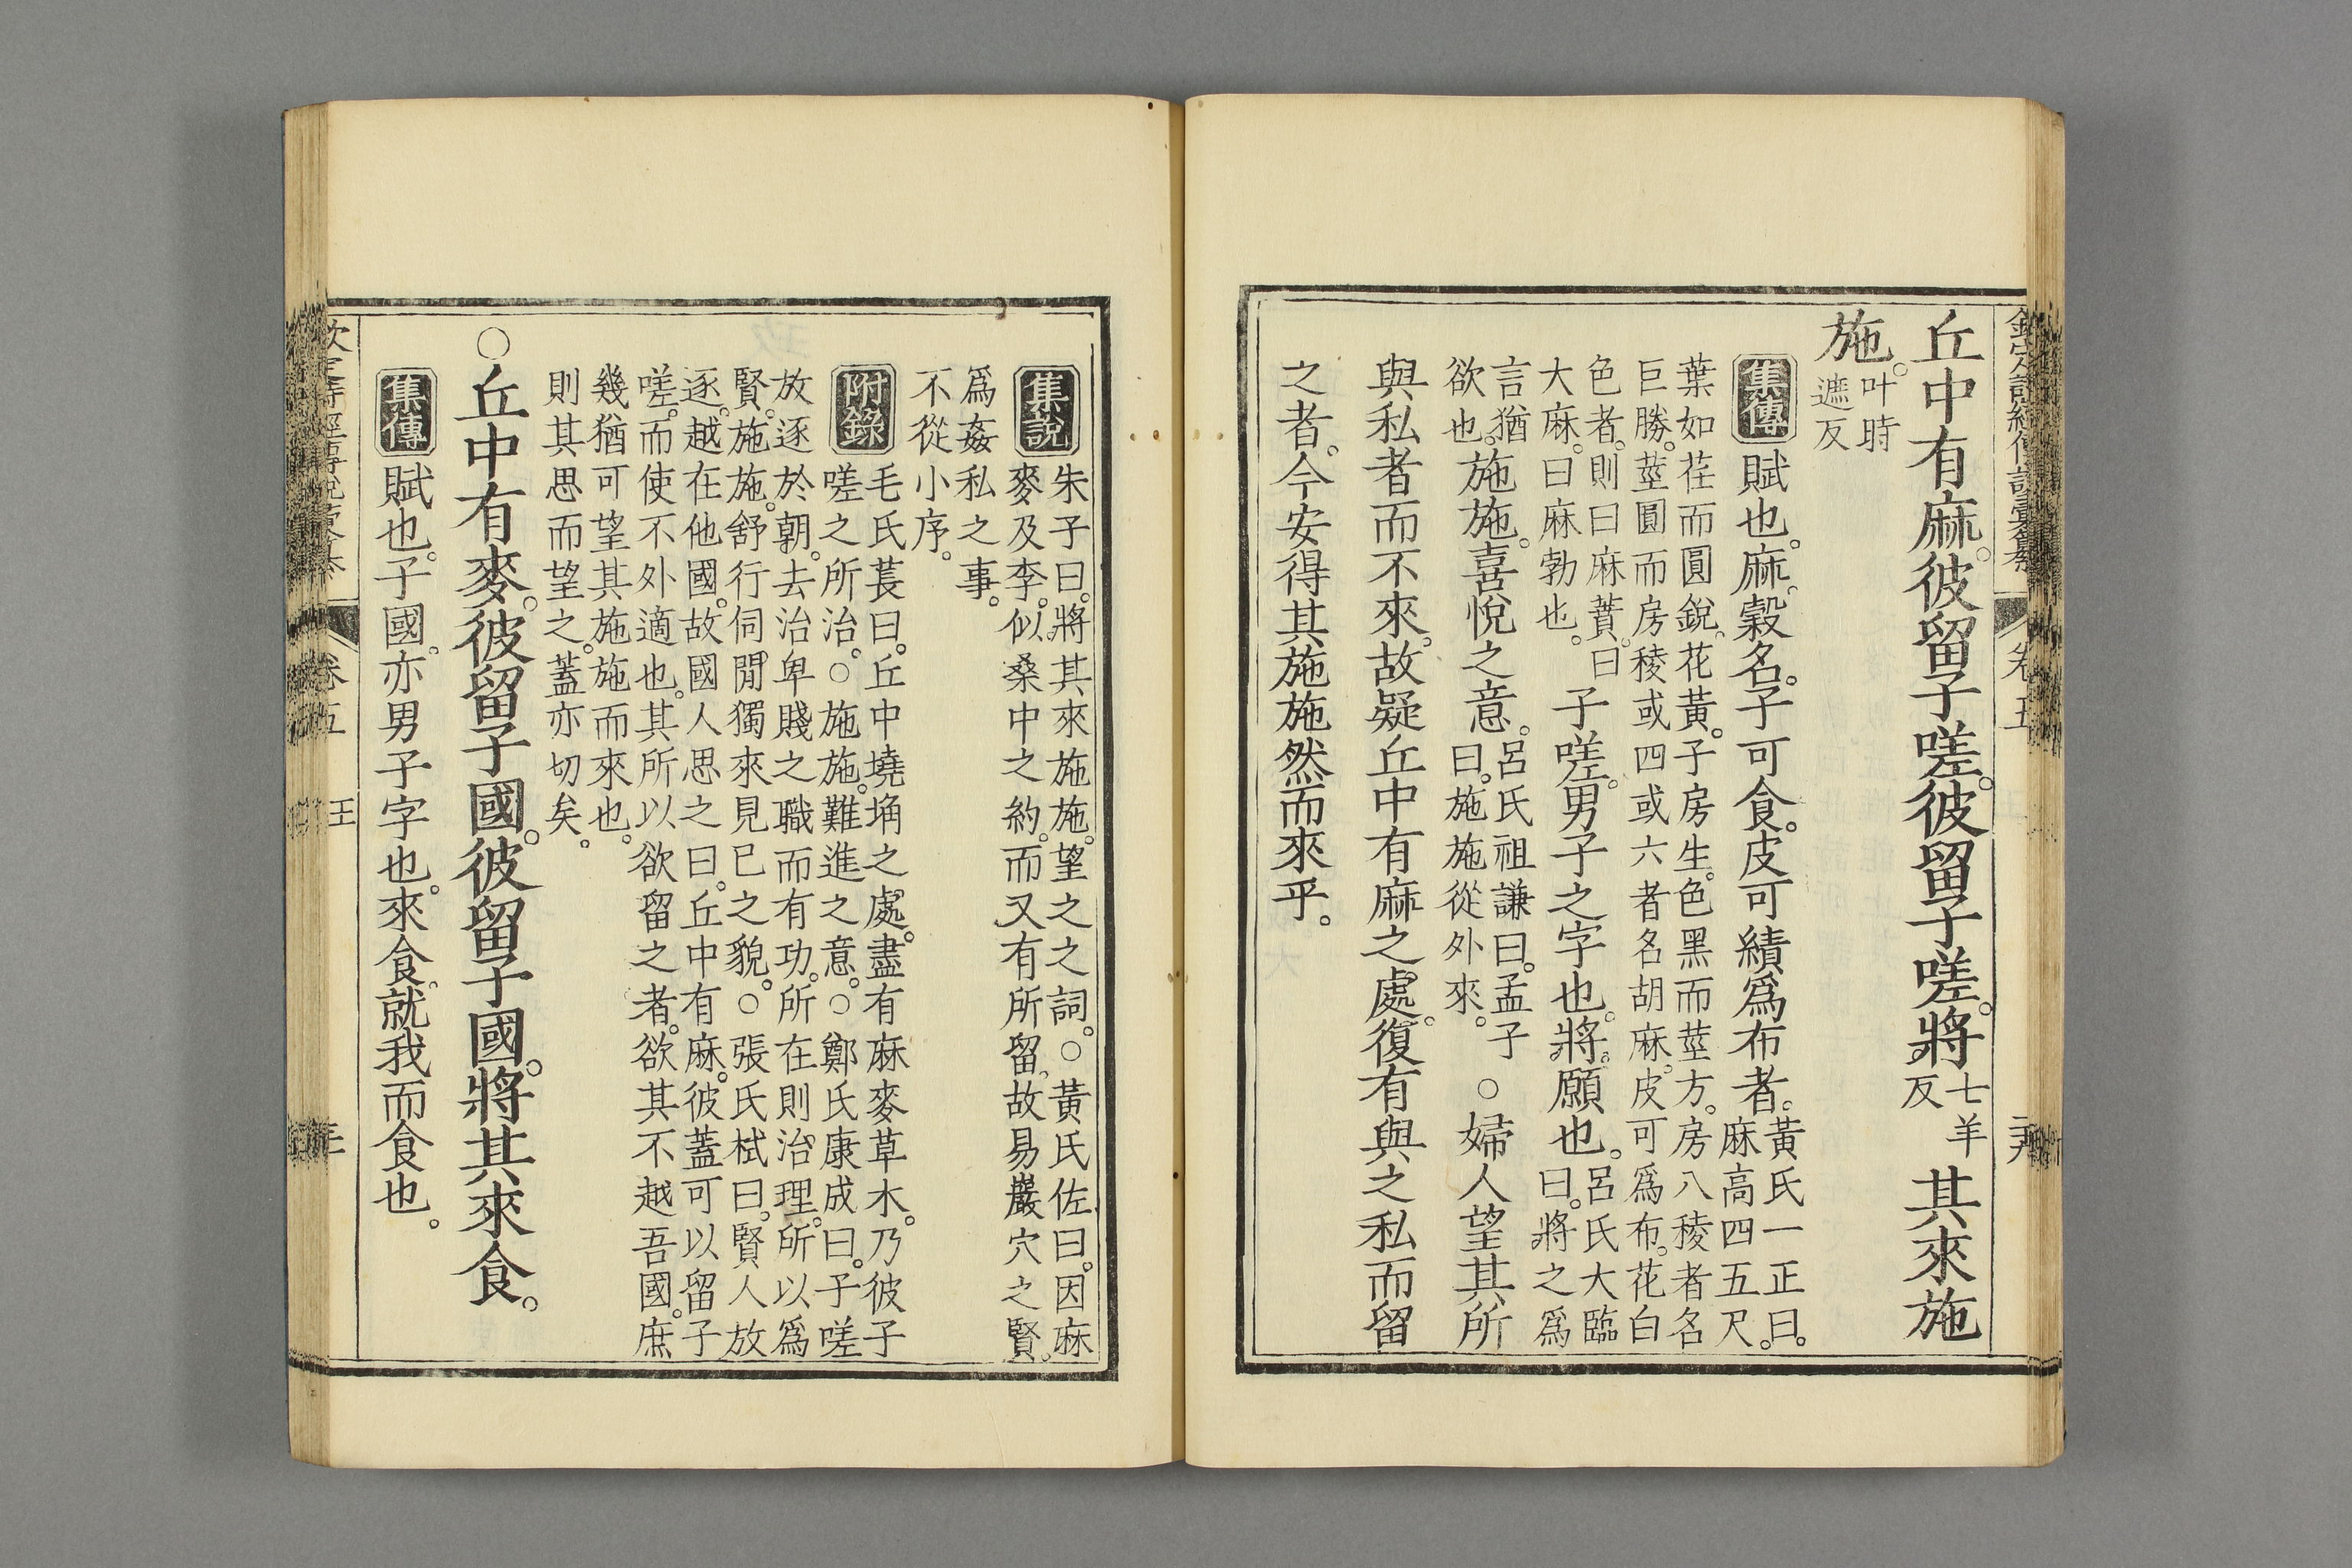 欽定詩經傳說彙纂 卷五
丘中有麻。彼留子嗟。彼留子嗟。將七羊反其來施
施。叶時遮反
集傳 賦也。麻。穀名。子可食。皮可績爲布者。黃氏一正曰。麻高四五尺。
葉如荏而圓銳。花黃。子房生。色黑而莖方。房八稜者名
巨勝。莖圓而房稜或四或六者名胡麻。皮可爲布。花白
色者。則曰麻蕡。曰大麻。曰麻勃也。子嗟。男子之字也。將。願也。呂氏大臨曰。將之爲
言猶欲也。施施。喜悅之意。呂氏祖謙曰。孟子曰。施施從外來。○婦人望其所
與私者而不來。故疑丘中有麻之處。復有與之私而留
之者。今安得其施施然而來乎。
集說 朱子曰。將其來施施。望之之詞。○黃氏佐曰。因麻
麥及李。似桑中之約。而又有所留。故易巖穴之賢。
爲姦私之事。
不從小序。
附錄 毛氏萇曰。丘中墝埆之處。盡有麻麥草木。乃彼子
嗟之所治。○施施。難進之意。○鄭氏康成曰。子嗟
放逐於朝。去治卑賤之職而有功。所在則治理。所以爲
賢。施施。舒行伺閒獨來見已之貌。○張氏栻曰。賢人放
逐。越在他國。故國人思之曰。丘中有麻。彼蓋可以留子
嗟。而使不外適也。其所以欲留之者。欲其不越吾國。庶
幾猶可望其施施而來也。
則其思而望之。蓋亦切矣。
○丘中有麥。彼留子國。彼留子國。將其來食。
集傳 賦也。子國。亦男子字也。來食。就我而食也。
卷五 王